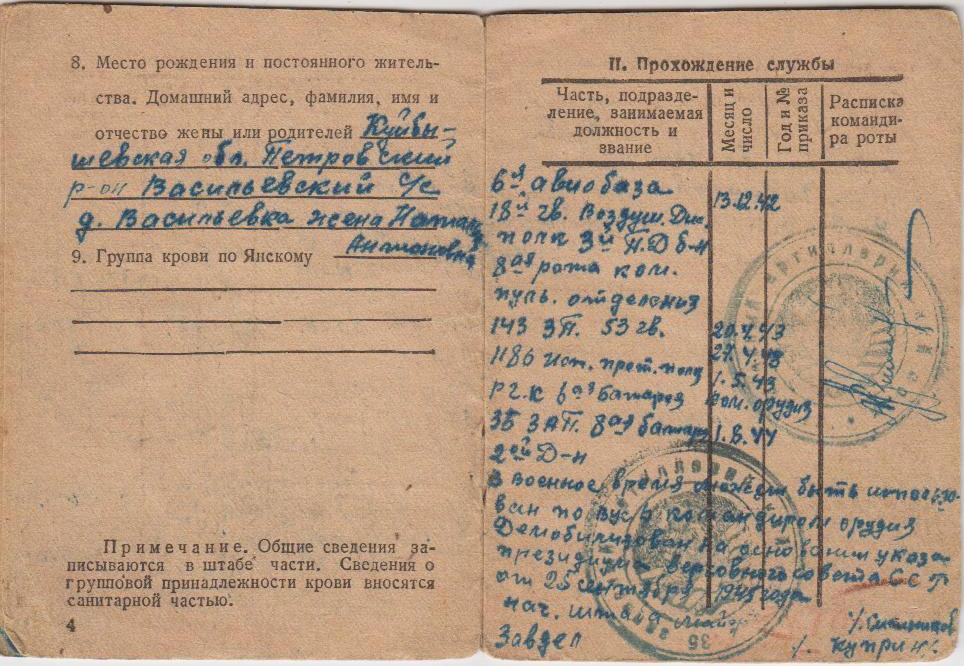 8. Место рождения и постоянного житель-
ства. Домашний адрес, фамилия, имя и
отчество жены или родителей Куйбы-
шевская обл. Петровский
р-он Васильевский с/с
д. Васильевка жена
Антоновна
9. Группа крови по Янскому
Примечание. Общие сведения за-
писываются в штабе части. Сведения о
групповой принадлежности крови вносятся
санитарной частью.
4
II. Прохождение службы
Часть, подразде-
ление, занимаемая
должность и
звание
Месяц и
число
Год и №
приказа
Расписка
команди-
ра роты
6я авиобаза
13.12.42
18й гв. Воздуш. Дис.
полк 3й П.Д б-н
8ая рота ком.
пуль. отделения
143 ЗП. 53 гв. 20.4.43
27.4.43
1186 Ист. прот. полк
1.5.43
РГК 6ая батарея Ком. орудия
35 ЗАП. 8ая батар 1.8.44
2ой Д-н
В военное время может быть использо-
ван по вус 4 командиром орудия
Демобилизован на основании указа
президиума верховного совета СССР
от 25 сентября 1945 года
нач. штаба майор
Завдел
35